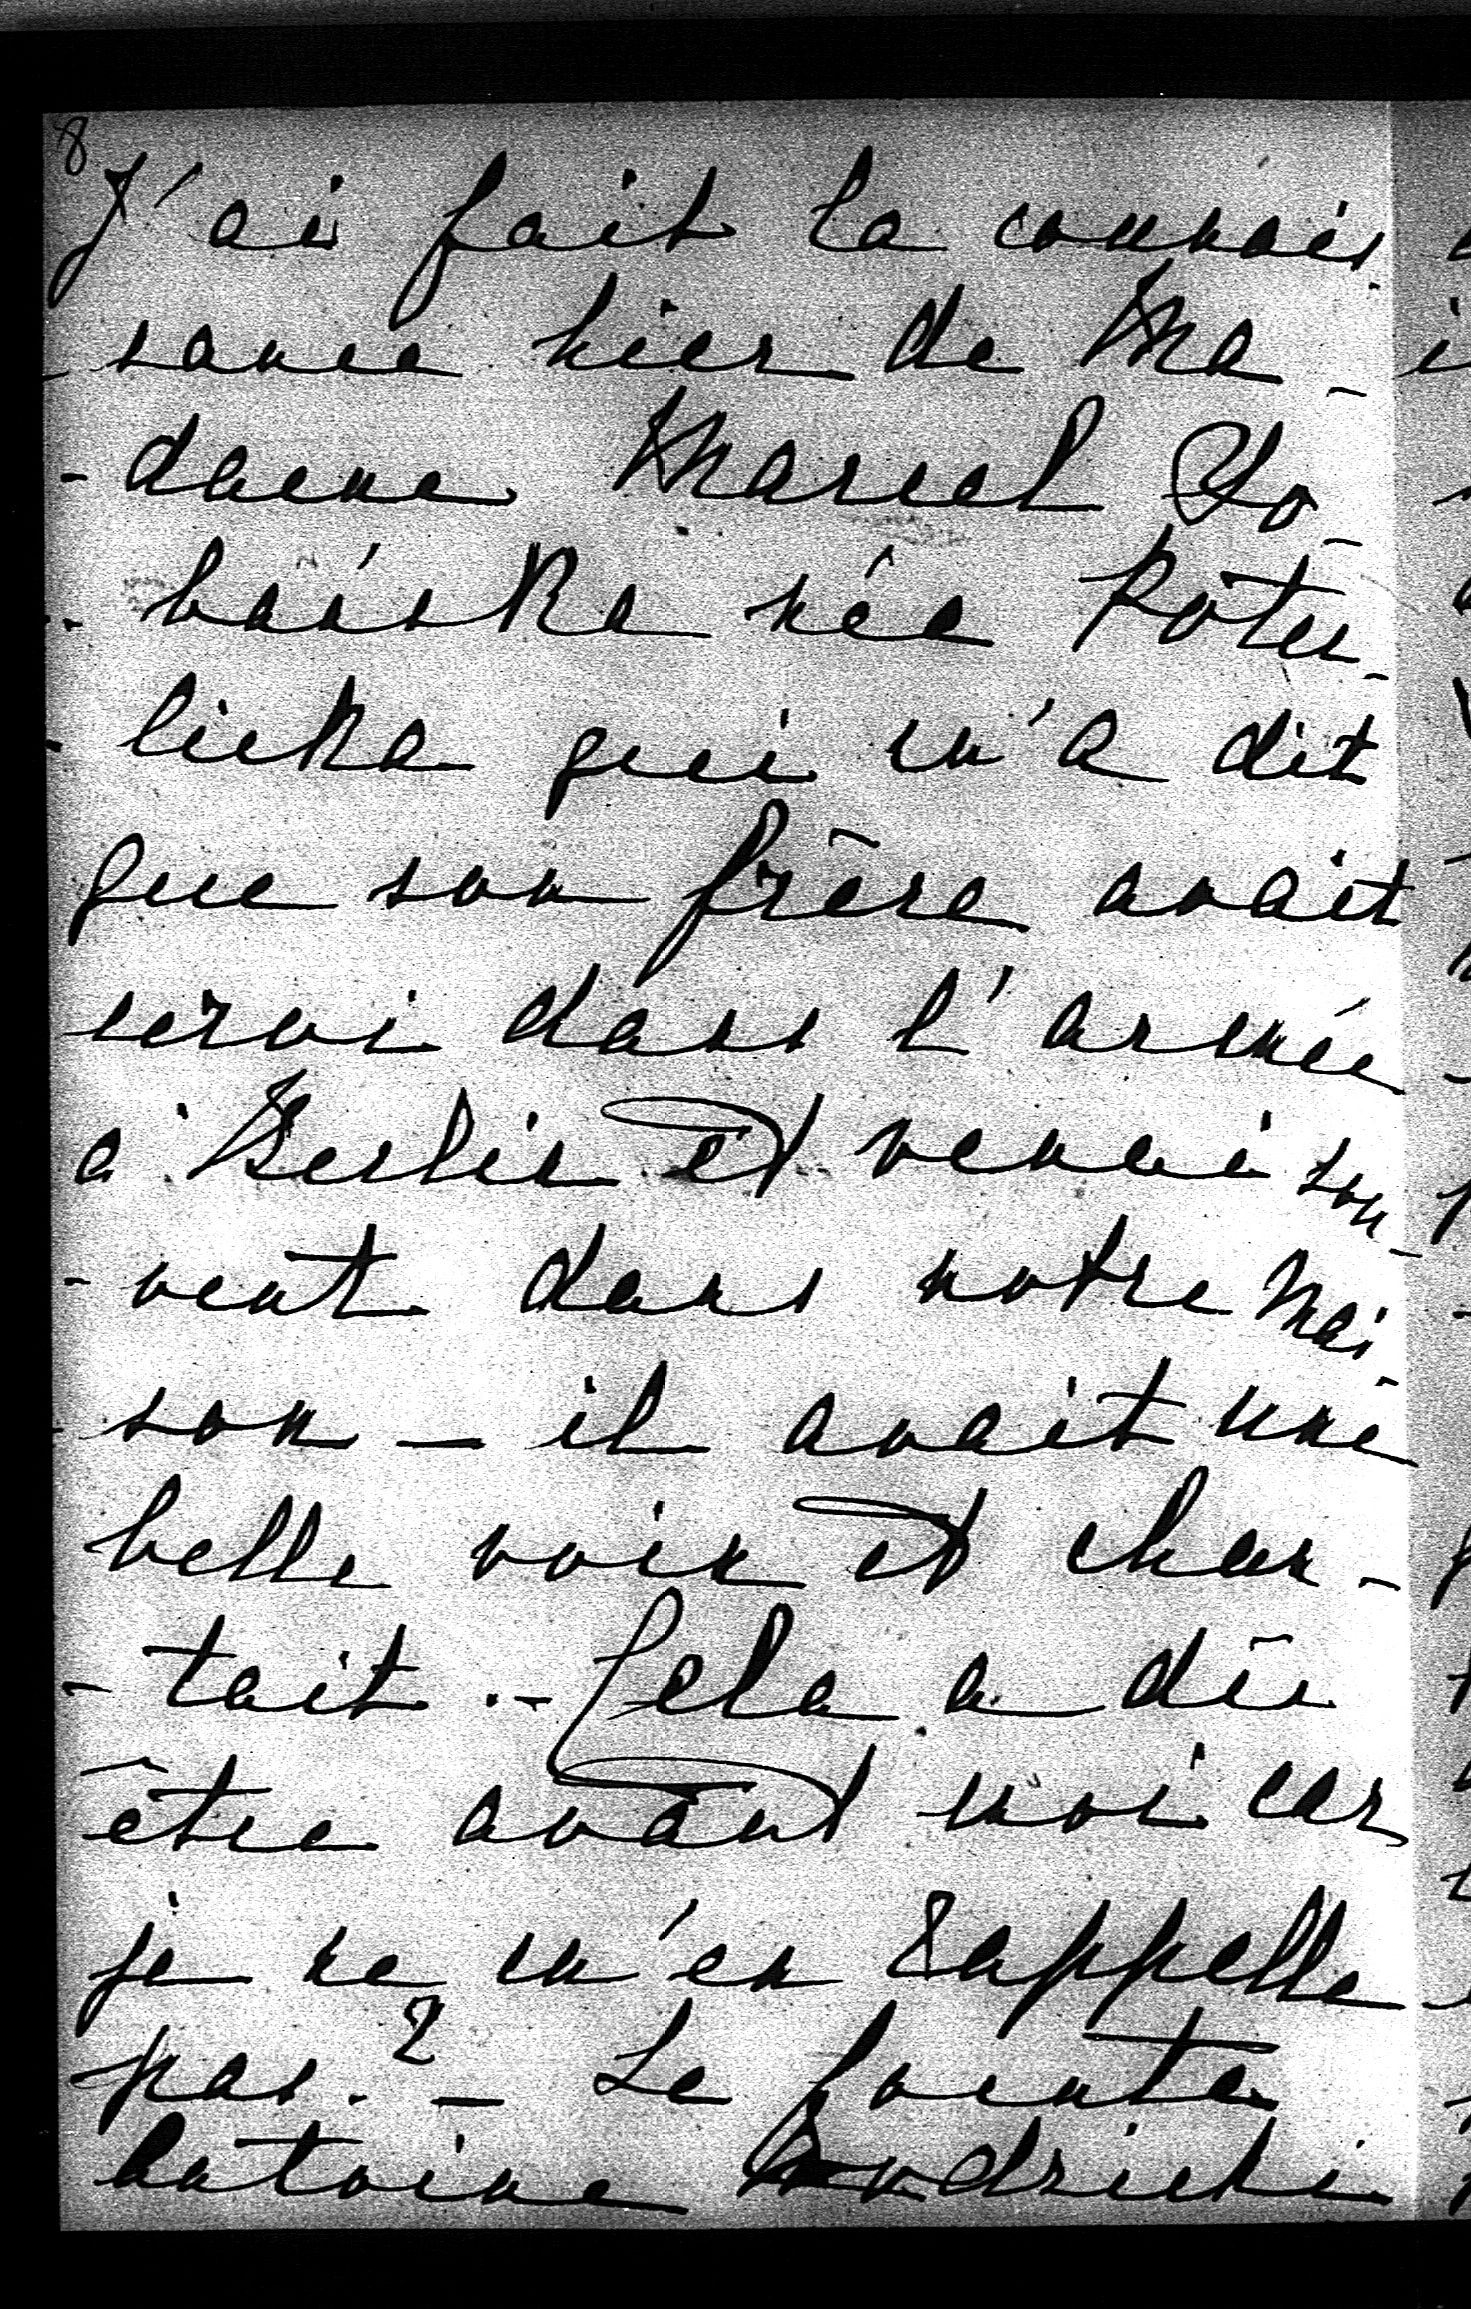 8
J'ai fait la connais-
-sance hier de Ma-
-dame Marcel Żo-
-baéska née Potu-
-licka qui m'a dit
que son frère avait
servi dans l'armée
a Berlin et venai sou-
-vent dans notre Mai-
-son – il avait une
belle voix et chan-
-tait. – Cela a dû
être avant moi car
je ne m'en rappelle
pas.? – Le Comte
Antoine Wodzicki